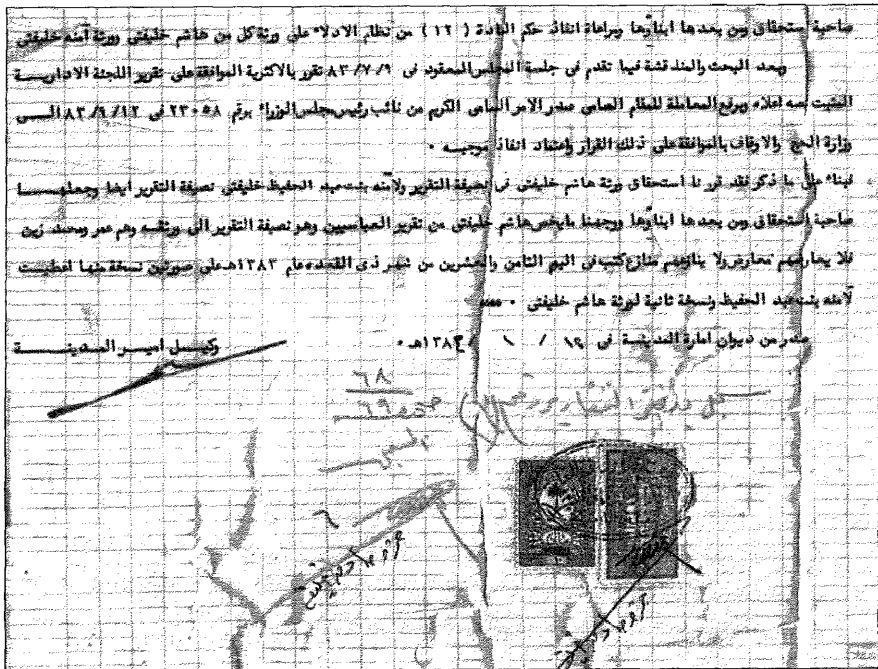 صاحبة استحقاق ومن بعدها ابناؤها وبراعاة انفاذ حكم المادة ( ١٢ ) من نظام الادلاء على ورثة كل من هاشم خليفتي وورثة آمنه خليفتي
وبعد البحث والمناقشة فيما تقدم في جلسة المجلس المعقود في ٨٣/٧/٩ تقرر بالاكثرية الموافقة على تقرير اللجنة الاداريــة
المثبت نصه اعلاه وبرفع المعاملة للمقام السامي صدر الامر السامي الكريم من نائب رئيس مجلس الوزراء برقم ٢٣٠٥٨ في ٨٣/٩/١٢ الــى
وزارة الحج والاوقاف بالموافقة على ذلك القرار واعتماد انفاذ موجبــه ٠
فبناء على ما ذكر فقد قررنا استحقاق ورثة هاشم خليفتي في نصيفة التقرير ولآمنه بنت عبد الحفيظ خليفتي نصيفة التقرير ايضا وجعلهــا
صاحبة استحقاق ومن بعدها ابناؤها ووجهنا ما يخص هاشم خليفتي من تقرير العباسيين وهو نصيفة التقرير الى ورثتــه وهم عمر ومحمد زين
فلا يعارضهم معارض ولا ينازعهم منازع كتب في اليوم الثامن والعشرين من شهر ذي القعده عام ١٣٨٣هـ على صورتين نسخة منها اعطيــت
لآمنه بنت عبد الحفيظ ونسخة ثانية لورثة هاشم خليفتي ٠
صدر من ديوان امارة المدينــة في ١٩ / ١ / ١٣٨٤هـ ٠ وكيــل اميــر المدينــة
سجل بدفتر التقارير ٦٨
٦٩